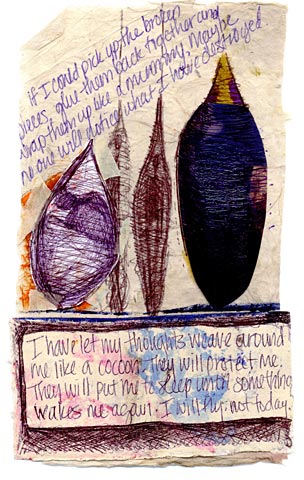 if I could pick up the broken
pieces, glue them back together and
wrap them up like a mummy, Maybe
no one will notice what I have destroyed.
I have let my thoughts weave around
me like a cocoon. They will protect me.
They will put me to sleep until something
wakes me again. I will fly, not today.